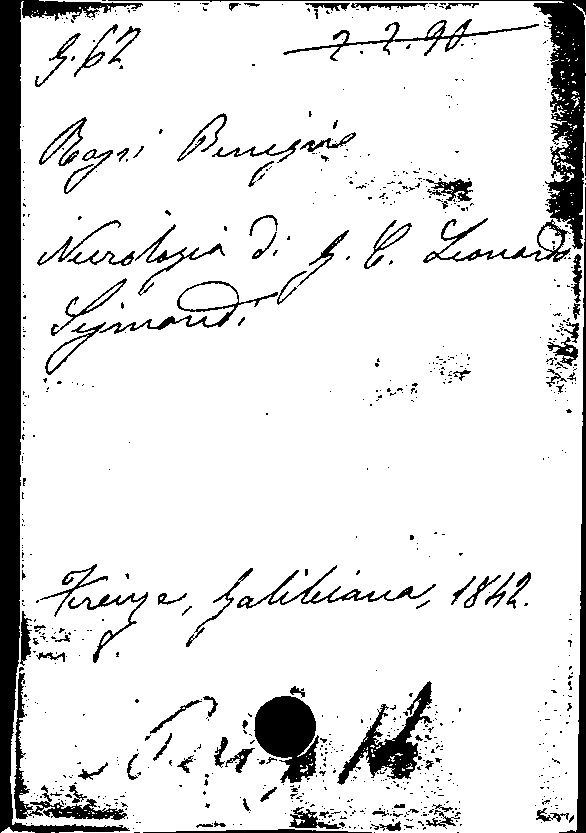 G.62 2.2.90
Rossi Benigno
Necrologia di G. C. Leonardo
Sismondi
Firenze, Galileiana, 1842.
8.